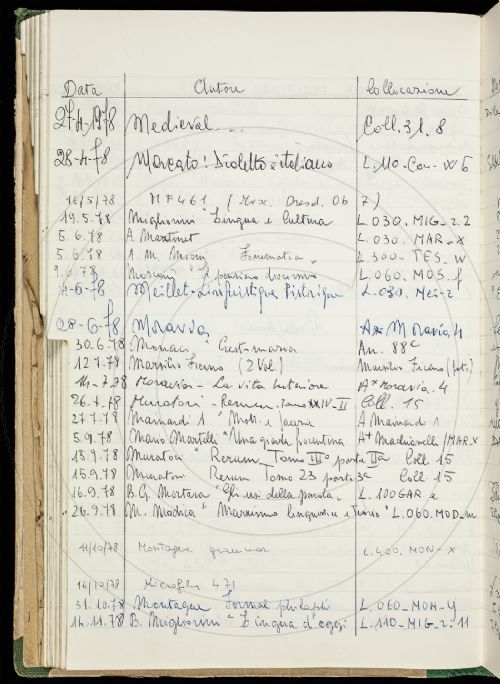 Data Autore Collocazione
27-4-1978 Medieval... Coll. 31. 8
28-4-78 Mercato: Dialetto e italiano L. 110-Con-
16/5/78 MF461 ( Dresd. Ob 7)
19.5.78 Migliorini "Lingua e Cultura L. 030. MIG-2.2
5.6.78 A. Martinet L. 030. MAR-X
5.6.78 A. M. L. 300-TES. W
9.6.78 "Il pensiero discorsivo L. 060. MOS. f
-6-78 Meillet-Linguistique historique L. 030. Mei-2
28-6-78 Moravia A* Moravia 4
30.6.78 Monaci "Crestomazia An. 88c
12.7.78 Marsilio Ficino (2 Vol.) Marsilio Ficino
14-7-78 Moravia - La vita interiore A* Moravia. 4
26.7.78 Muratori - Rerum. Tomo II Coll. 15
27.7.78 Mainardi 1. e facezie A Mainardi 1
5.9.78 Mario Martelli "Una giarda fiorentina A* Machiavelli /MAR.X
15.9.78 Muratori "Rerum Tomo III° parte IIa Coll. 15
15.9.78 Muratori Rerum Tomo 23 parte 3a Coll. 15
16.9.78 B.G. Mortara "Gli usi della parola" L. 100GAR. e
26.9.78 M. Modica "Marxismo linguistica e Teoria" L. 060. MOD-m
11/10/78 Montague grammar L. 400. MON-X
16/10/78 Microfilm 471
31.10.78 Montague Formal philosophy L. 060-MON-4
14.11.78 B. Migliorini "Lingua d'oggi L. 110-MIG-2.11